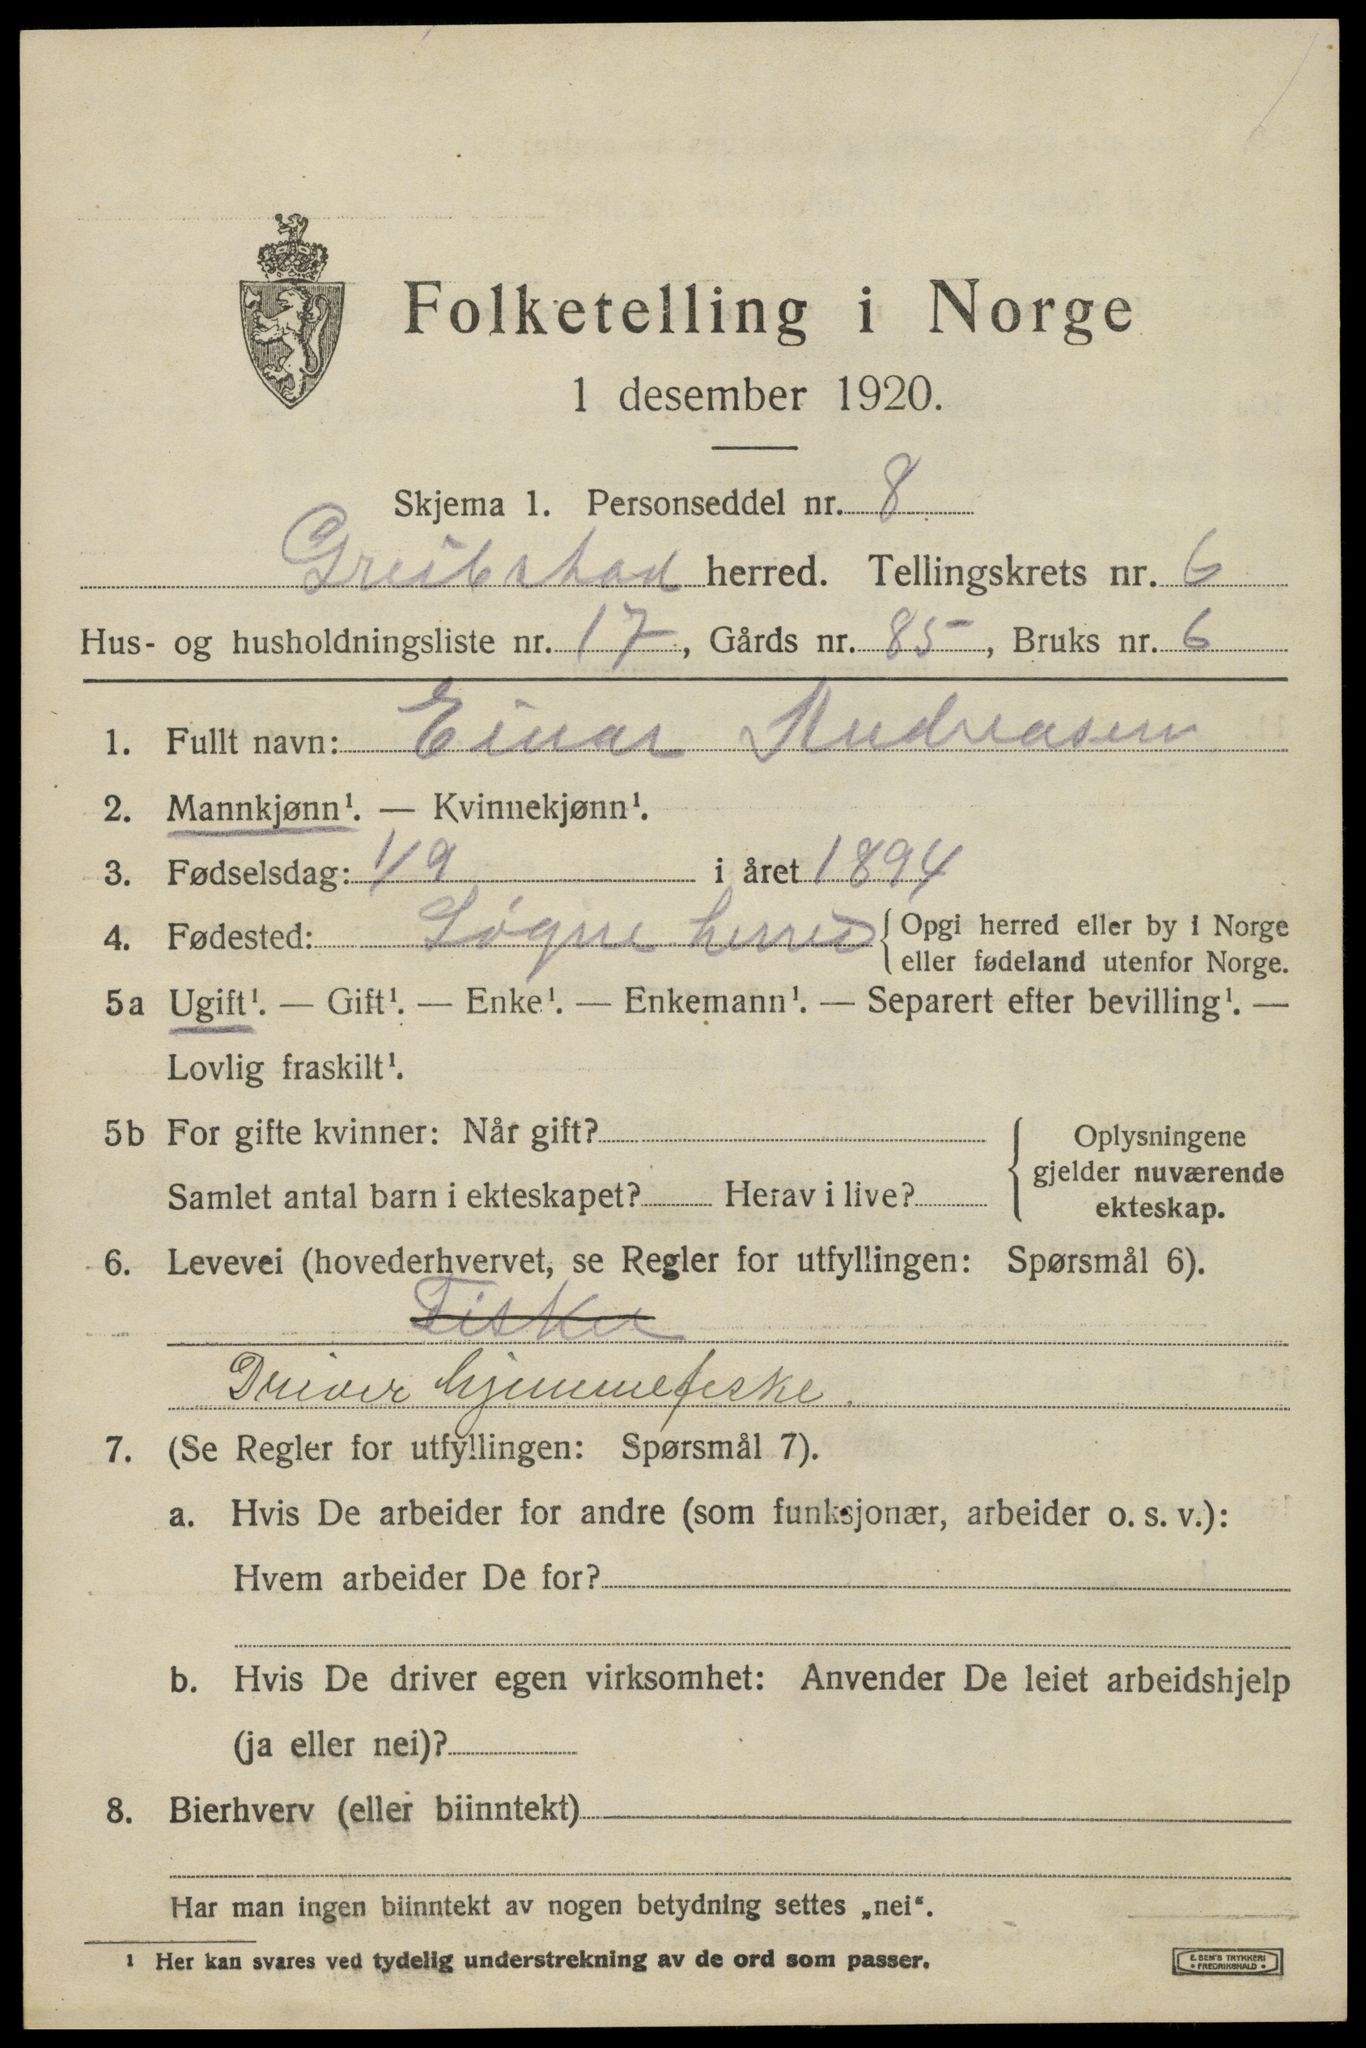 Folketelling i Norge
1 desember 1920.
Skjema 1. Personseddel nr. 8
Greibstad herred. Tellingskrets nr. 6
Hus- og husholdningsliste nr. 17, Gårds nr. 85, Bruks nr. 6
1. Fullt navn: Einar Andreasen
2. Mannkjønn¹. — Kvinnekjønn¹.
3. Fødselsdag: 1/9 i året 1894
4. Fødested: Søgne herred { Opgi herred eller by i Norge
eller fødeland utenfor Norge.
5a Ugift¹. — Gift¹. — Enke¹. — Enkemann¹. — Separert efter bevilling¹. —
Lovlig fraskilt¹.
5b For gifte kvinner: Når gift?
Samlet antal barn i ekteskapet? Herav i live?
{ Oplysningene
gjelder nuværende
ekteskap.
6. Levevei (hovederhvervet, se Regler for utfyllingen: Spørsmål 6).
Fisker
Driver hjemmefiske.
7. (Se Regler for utfyllingen: Spørsmål 7).
a. Hvis De arbeider for andre (som funksjonær, arbeider o. s. v.):
Hvem arbeider De for?
b. Hvis De driver egen virksomhet: Anvender De leiet arbeidshjelp
(ja eller nei)?
8. Bierhverv (eller biinntekt)
Har man ingen biinntekt av nogen betydning settes „nei“.
¹ Her kan svares ved tydelig understrekning av de ord som passer.
E. SEM'S TRYKKERI
• FREDRIKSHALD •